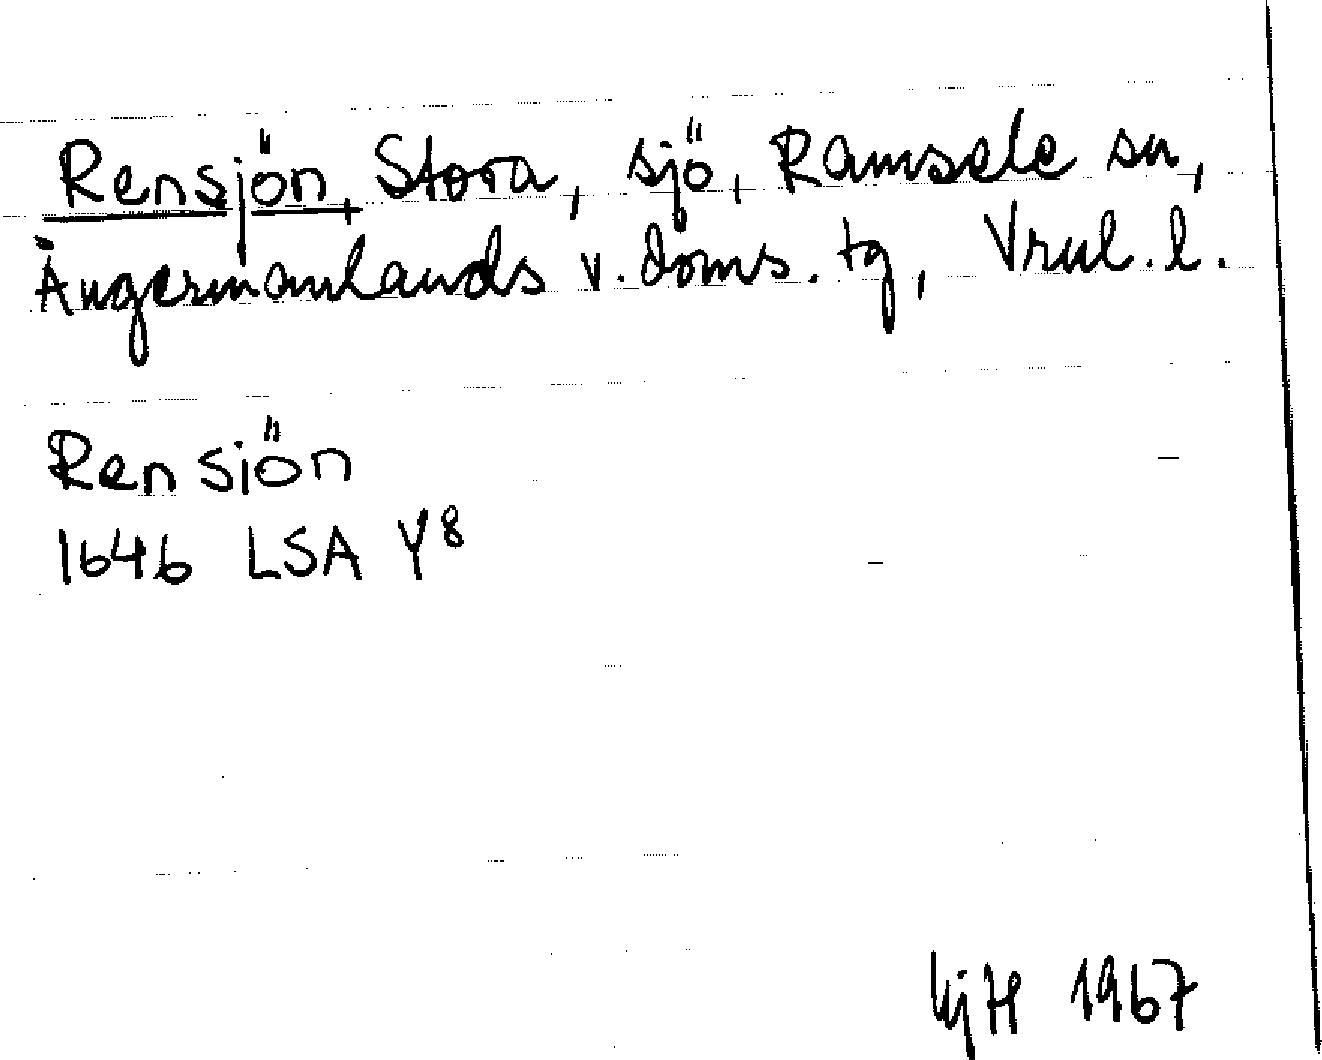 Rensjön, Stora, sjö, Ramsele sn,
Ångermanlands v. doms. tg, Vrnl. l.
Rensiön
1646 LSA Y8
1967